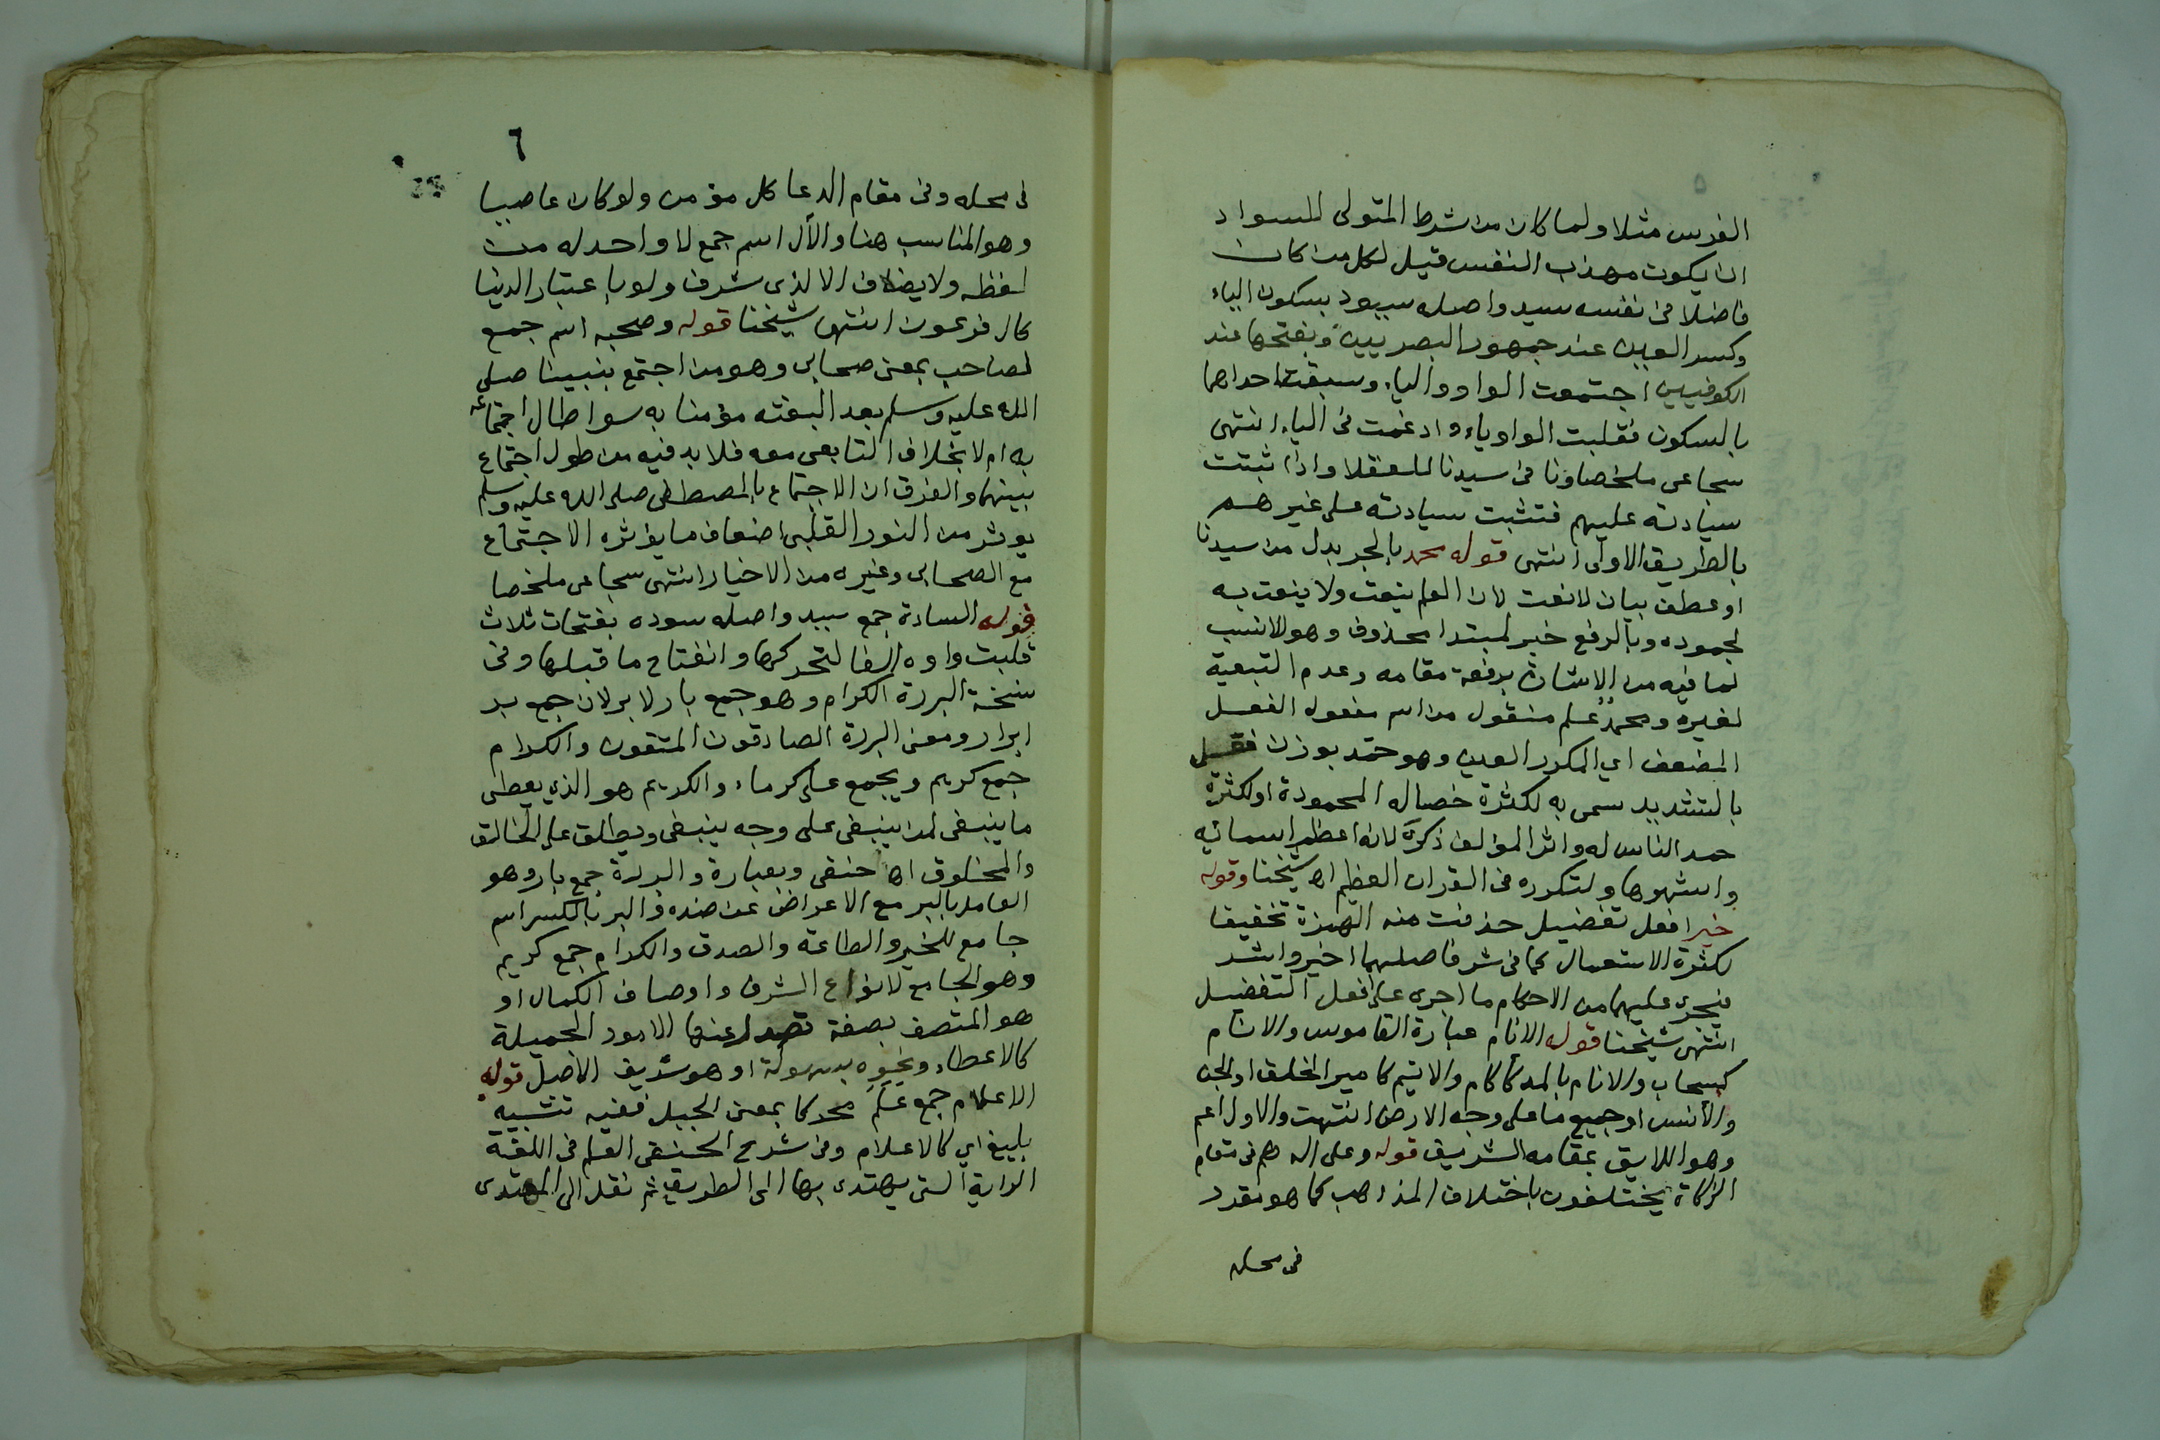 ٥
الفرس مثلا ولما كان من شرط المتولى للسواد
ان يكون مهذب النفس قيل لكل من كان
فاضلا فى نفسه سيد واصله سيود بسكون الياء
وكسر العين عند جمهور البصريين وبفتحها عند
الكوفيين اجتمعت الواو والياء وسبقت احداهما
بالسكون فقلبت الواو ياء وادغمت فى الياء انتهى
سجاعى ملخصا ونا فى سيدنا للعقلا واذا ثبتت
سيادته عليهم فتثبت سيادته على غيرهم
بالطريق الاولى انتهى قوله محمد بالجر بدل من سيدنا
او عطف بيان لا نعت لان العلم ينعت ولا ينعت به
لجموده وبالرفع خبر لمبتدا محذوف وهو الانسب
لما فيه من الاشارة برفعة مقامه وعدم التبعية
لغيره ومحمد علم منقول من اسم مفعول الفعل
المضعف اي المكرر العين وهو حمد بوزن فعل
بالتشديد سمى به لكثرة خصاله المحمودة او لكثرة
حمد الناس له واثر المؤلف ذكره لانه اعظم اسمائه
واشهرها ولتكرره فى القران العظيم اه شيخنا وقوله
خير افعل تفضيل حذفت منه الهمزة تخفيفا
لكثرة الاستعمال كما فى شر فاصلهما اخير واشر
فيجرى عليهما من الاحكام ما اجرى على افعل التفضيل
انتهى شيخنا قوله الانام عبارة القاموس والانام
كسحاب والانام بالمد كاكام والانيم كامير الخلق او الجن
والانس او جميع ما على وجه الارض انتهت والاول اعم
وهو اللايق بمقامه الشريف قوله وعلى اله هم فى مقام
الزكاة يختلفون باختلاف المذاهب كما هو مقرر
فى محله
٦
فى محله وفى مقام الدعا كل مؤمن ولو كان عاصيا
وهو المناسب هنا والآل اسم جمع لا واحد له من
لفظه ولا يضاف الا لذى شرف ولو باعتبار الدنيا
كال فرعون انتهى شيخنا قوله وصحبه اسم جمع
لصاحب بمعنى صحابى وهو من اجتمع بنبينا صلى
الله عليه وسلم بعد البعثه مؤمنا به سوا طال اجتماعه
به ام لا بخلاف التابعى معه فلا بد فيه من طول اجتماع
بينهما والفرق ان الاجتماع بالمصطفى صلى الله عليه وسلم
يوثر من النور القلبى اضعاف ما يؤثره الاجتماع
مع الصحابى وغيره من الاخيار انتهى سجاعى ملخصا
قوله السادة جمع سيد واصله سوده بفتحات ثلاث
قلبت واوه الفا لتحركها وانفتاح ما قبلها وفى
نسخة البررة الكرام وهو جمع بار لا بر لان جمع بر
ابرار ومعنى البررة الصادقون المتقون والكرام
جمع كريم ويجمع على كرماء والكريم هو الذي يعطى
ما ينبغى لمن ينبغى على وجه ينبغى ويطلق على الخالق
والمخلوق اه حنفى وبعبارة والبررة جمع بار وهو
العامل بالبر مع الاعراض عن ضده والبر بالكسر اسم
جامع للخير والطاعة والصدق والكرام جمع كريم
وهو الجامع لانواع الشرف واوصاف الكمال او
هو المتصف بصفة تصدر عنها الامور الجميلة
كالاعطاء ونحوه بسهولة او هو شريف الاصل قوله
الاعلام جمع علم محركا بمعنى الجبل ففيه تشبيه
بليغ اي كالاعلام وفى شرح الحنفى العلم فى اللغة
الراية التى يهتدى بها الى الطريق ثم نقل الى المهتدى